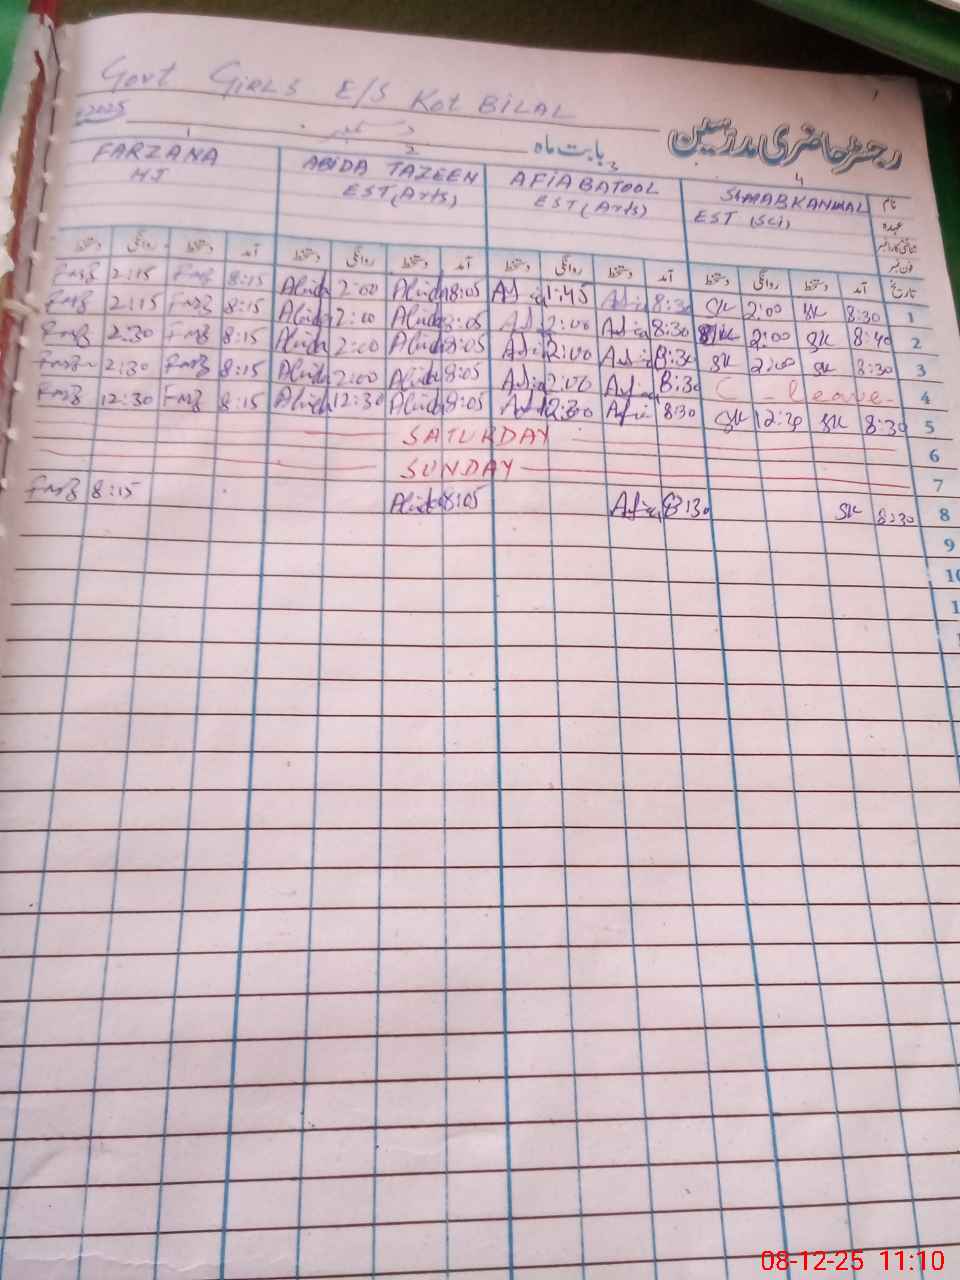 Govt GIRLS E/S Kot BILAL
2025 بابت ماہ رجسٹر حاضری مدرسین
1 2 3 4
FARZANA ABIDA TAZEEN AFIA BATOOL SIMAB KANWAL نام
HT EST (Arts) EST (Arts) EST (Sci) عہدہ
دستخط روانگی دستخط آمد دستخط روانگی دستخط آمد دستخط روانگی دستخط آمد دستخط روانگی دستخط آمد تاریخ
2:15 8:15 Abida 2:00 Abida 8:05 Afia 1:45 Afia 8:30 SK 2:00 SK 8:30 1
2:15 8:15 Abida 2:00 Abida 8:05 Afia 2:00 Afia 8:30 SK 2:00 SK 8:40 2
2:30 8:15 Abida 2:00 Abida 8:05 Afia 2:00 Afia 8:30 SK 2:00 SK 8:30 3
2:30 8:15 Abida 2:00 Abida 8:05 Afia 2:00 Afia 8:30 C - leave - 4
12:30 8:15 Abida 12:30 Abida 8:05 Afia 12:30 Afia 8:30 SK 12:30 SK 8:30 5
SATURDAY 6
SUNDAY 7
8:15 Abida 8:05 Afia 8:30 SK 8:30 8
9
10
08-12-25 11:10